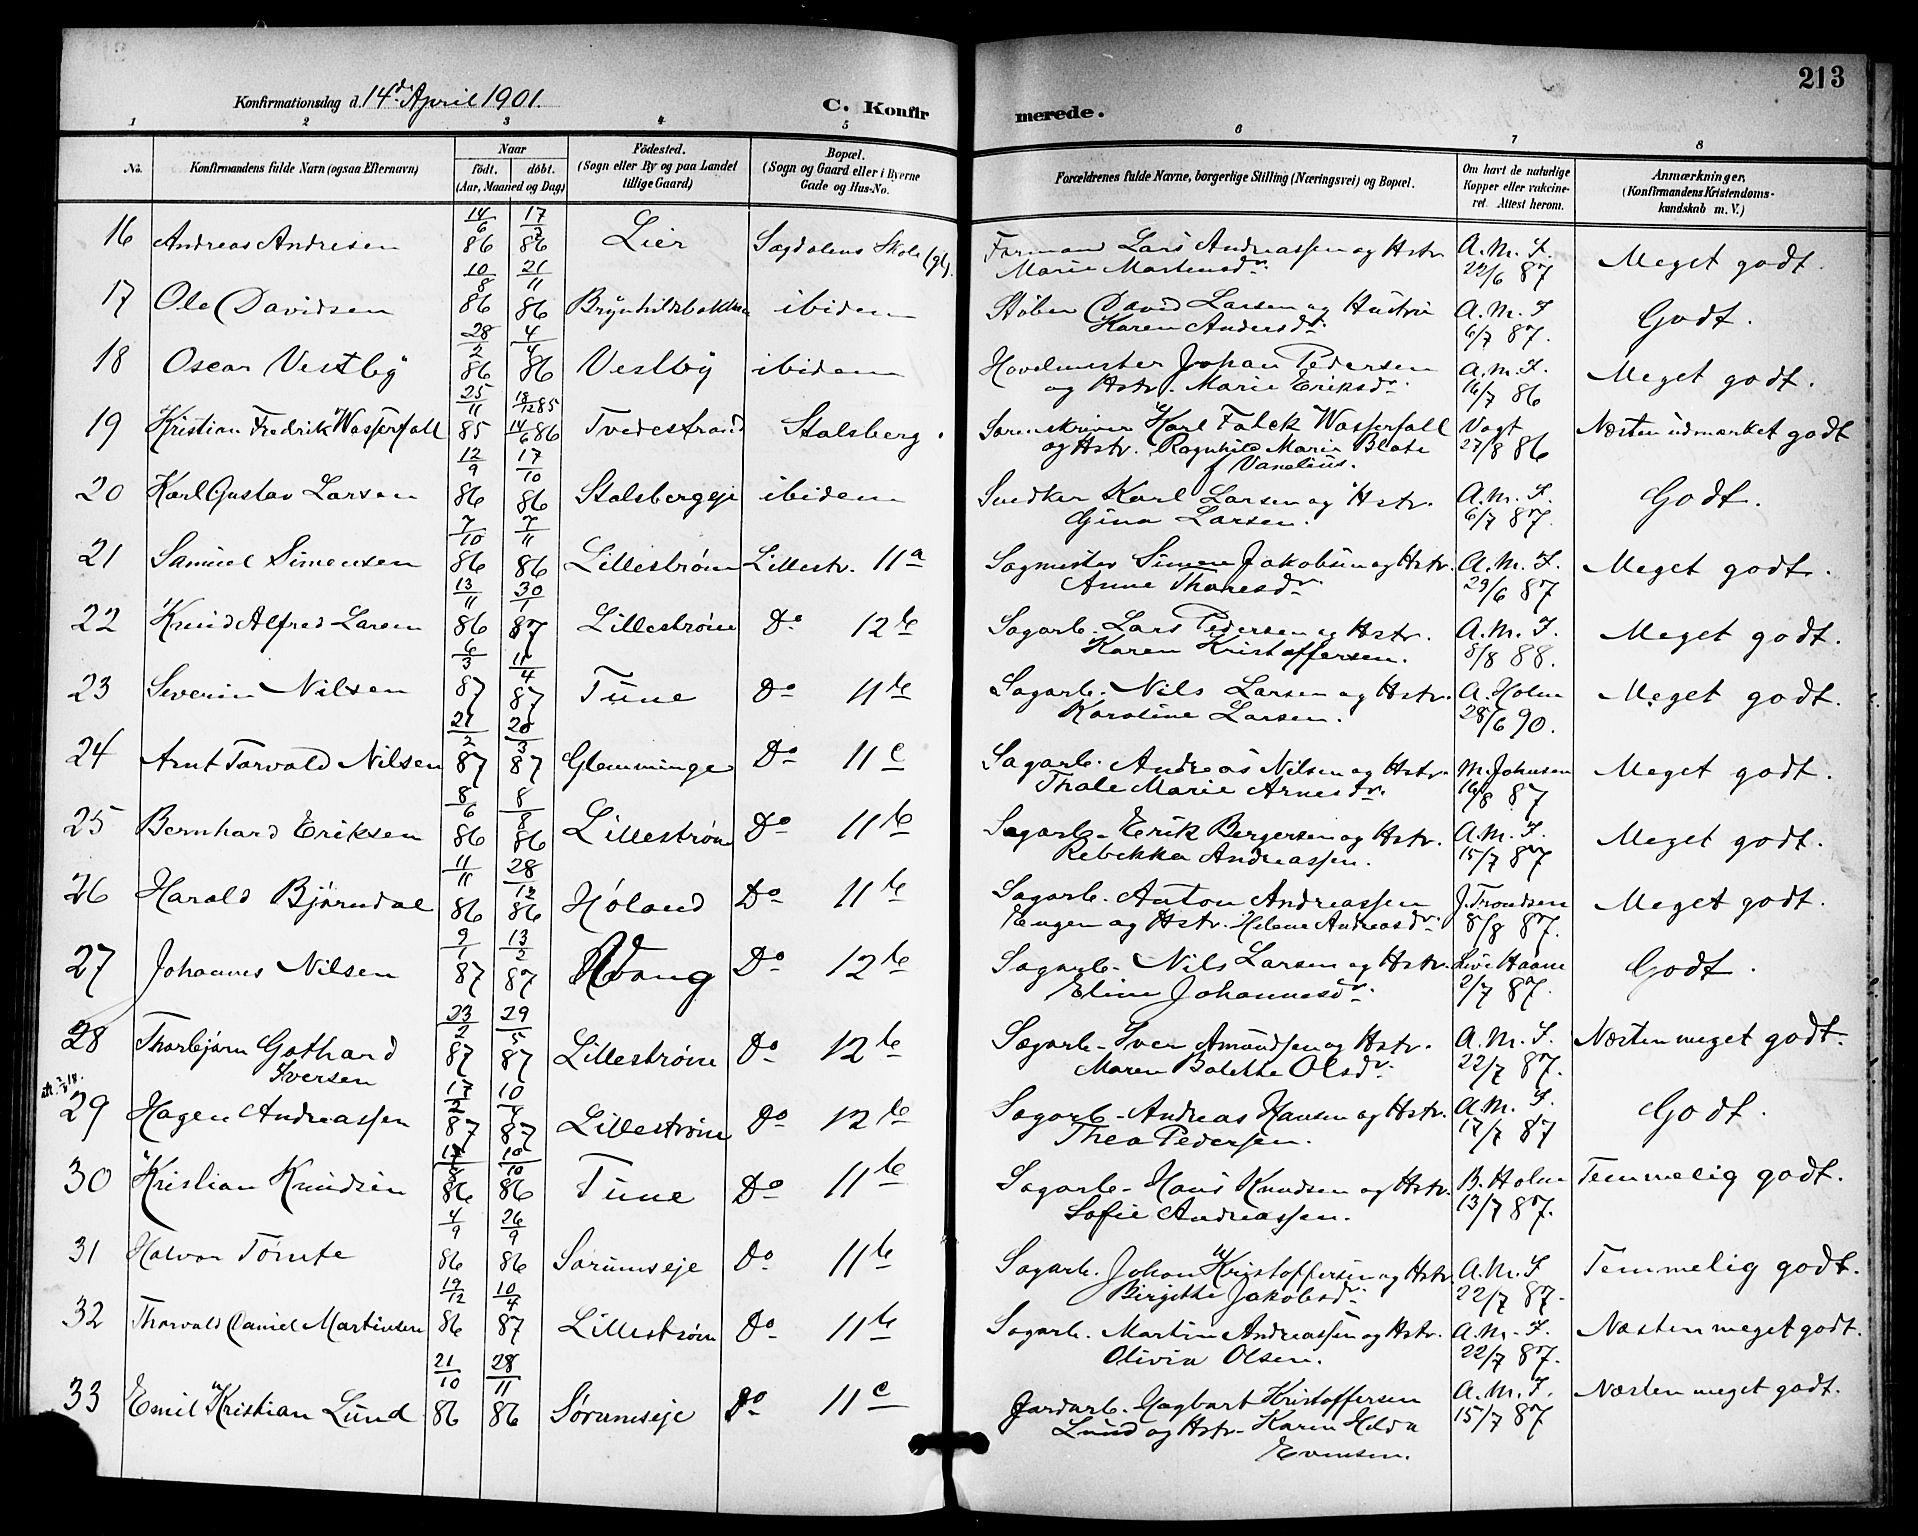 213
Konfirmationsdag d. 14d April 1901.
C. Konfirmerede.
1 2 3 4 5 6 7 8
No. | Konfirmandens fulde Navn (ogsaa Efternavn) | Naar födt. döbt. (Aar, Maaned og Dag) | Födested. (Sogn eller By og paa Landet tillige Gaard) | Bopæl. (Sogn og Gaard eller i Byerne Gade og Hus-No. | Forældrenes fulde Navne, borgerlige Stilling (Næringsvei) og Bopæl. | Om havt de naturlige Kopper eller vakcineret. Attest herom. | Anmærkninger, (Konfirmandens Kristendomskundskab m. V.)
16 Andreas Andresen 14/6 86 17/ 86 Lier Sagdalens Skole (gl). Formand Lars Andreassen og Hstr. Marie Martensdr. A. M. F. 22/6 87 Meget godt.
17 Ole Davidsen 10/8 86 21/11 86 Brynhildsbakken ibidem Støber David Larsen og Hustru Karen Andersdr. A. M. F 6/7 87. Godt.
18 Oscar Vestby 28/2 86 4/4 86 Vestby ibidem Hovedmester Johan Pedersen og Hstr. Marie Eriksdr. A. M. F. 16/7 86 Meget godt.
19 Kristian Fredrik Wasserfall 25/11 85 18/12 85 14/6 86 Tvedestrand Stalsberg. Sorenskriver Karl Falck Wasserfall og Hstr. Ragnhild Marie f. Vogt 27/8 86 Næsten udmærket godt
20 Karl Gustav Larsen 12/9 86 17/10 86 Stalsbergeje ibidem Snedker Karl Larsen og Hstr. Gina Larsen. A. M. F. 6/7 87. Godt.
21 Samuel Simensen 7/10 86 7/11 86 Lillestrøm Lillestr. 11a Sagmester Simen Jakobsen og Hstr. Anne Thoresdr A. M. F. 29/6 87 Meget godt.
22 Knud Alfred Larsen 13/11 86 30/1 87 Lillestrøm Do 12b Sagarb. Lars Pedersen og Hstr. Karen Kristoffersen. A. M. F. 8/8 88. Meget godt.
23 Severin Nilsen 6/3 87 11/4 87 Tune Do 11b Sagarb. Nils Larsen og Hstr. Karoline Larsen. A. Holm 28/6 90. Meget godt.
24 Arnt Torvald Nilsen 21/2 87 20/3 87 Glemminge Do 11c Sagarb. Andreas Nilsen og Hstr. Thale Marie Arnesdr. M. Johnsen 16/8 87 Meget godt.
25 Bernhard Eriksen 8/6 86 8/8 86 Lillestrøm Do 11b Sagarb. Erik Bergersen og Hstr. Rebekka Andreassen. A. M. F. 15/7 87 Meget godt.
26 Harald Bjørndal 11/11 86 28/12 86 Høland Do 11b Sagarb. Anton Andreassen Engen og Hstr. Helene Andreasdr. J. Trondsen 8/8 87. Meget godt.
27 Johannes Nilsen 9/1 87 13/2 87 Vang Do 12b Sagarb. Nils Larsen og Hstr. Eline Johannesdr. 2/7 87. Godt.
28 Thorbjørn Gothard Iversen 23/2 87 29/5 87 Lillestrøm Do 12b Sagarb. Iver Amundsen og Hstr. Maren Bolette Olsdr. A. M. F. 22/7 87. Næsten meget godt.
29 Hagen Andreassen 17/2 87 10/4 87 Lillestrøm Do 12b Sagarb. Andreas Hansen og Hstr. Thea Pedersen. A. M. F. 17/7 87 Godt.
30 Kristian Knudsen 86 10/10 86 Tune Do 11b Sagarb. Hans Knudsen og Hstr. Sofie Andreassen. B. Holm 13/7 87. Temmelig godt.
31 Halvor Tømte 4/9 86 26/9 86 Sørumseje Do 11b Sagarb. Johan Kristoffersen og Hstr. Birgitte Jakobsdr. A. M. F 22/7 87. Temmelig godt.
32 Thorvald Daniel Martinsen 19/12 86 10/4 87 Lillestrøm Do 11b Sagarb. Martin Andreassen og Hstr. Olivia Olsen. A. M. F. 22/7 87. Næsten meget godt.
33 Emil Kristian Lund 21/10 86 28/11 86 Sørumseje Do 11c Jordarb. Dagbart Kristoffersen Lund og Hstr. Karen Hilda Evensen. A. M. F. 15/7 87 Næsten meget godt.